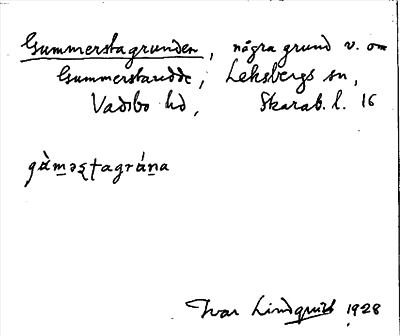 Gummerstagrunden, några grund v. om
Gummerstaudde, Leksbergs sn,
Vadsbo hd, Skarab. l. 16
gàm̠əʂtagrán̠a
Ivar Lindquist 1928